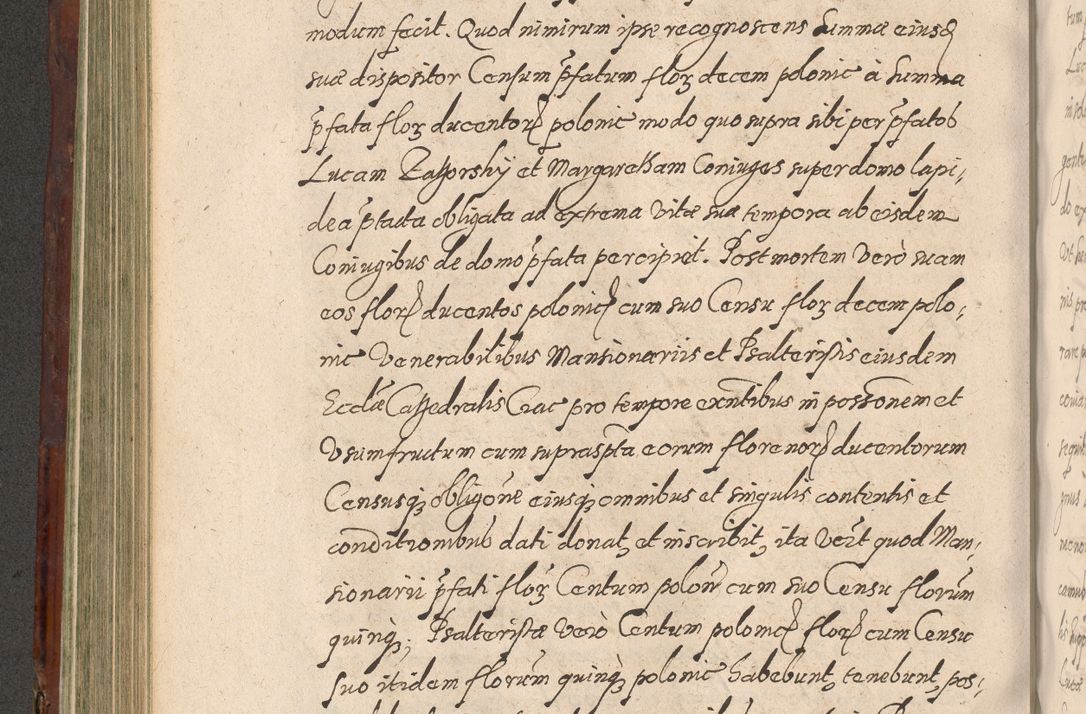 modum fecit. Quod nimirum ipse recognoscens summæ eiusd
suæ dispositor Censum pfatum floȝ decem polonic à summa
pfata floȝ ducentoꝝ polonic modo quo supra sibi per pfatos
Lucam Zassorsky et Margaretham Coniuges super domo lapi,
dea ptacta obligata ad extrema vitæ suæ tempora ab eisdem
Coniugibus de domo pfata percipiet. Post mortem verò suam
eos floꝝ ducentos poloniꝝ cum suo Censu floȝ decem polo,
nic Venerabilibus Mansionariis et Psalteristis eiusdem
Ecclæ Cathedralis Crac pro tempore exntibus in possonem et
Vsumfructum cum supraspta eorum florenoꝝ ducentorum
Censusqȝ obligõne eiusqȝ omnibus et singulis contentis et
conditionibus dati donat, et inscribit, ita vert quod Man,
sionarii pfati floȝ Centum polon cum suo Censu florum
quinqȝ. Psalteristæ verò Centum poloniꝝ floꝝ cum Censu
suo itidem florum quinqȝ polonic habebunt, tenebunt, pos,